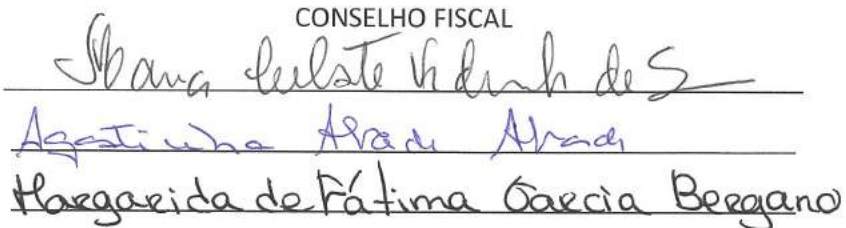 CONSELHO FISCAL
Maria Celeste de S
Agostinho
Margarida de Fátima Garcia Bergano